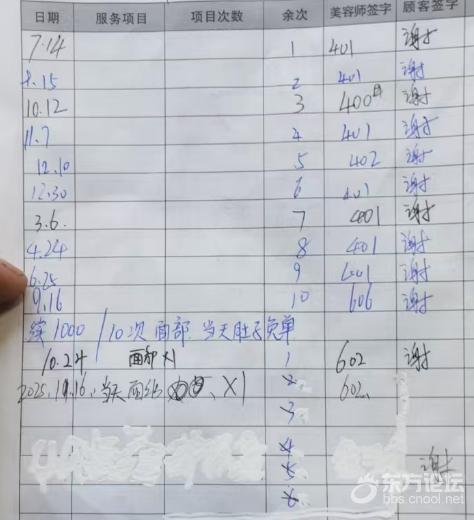 日期 服务项目 项目次数 余次 美容师签字 顾客签字
7.14 1 401 谢
8.15 2 401 谢
10.12 3 400 谢
11.7 4 401 谢
12.10 5 402 谢
12.30 6 401 谢
3.6. 7 401 谢
4.24 8 401 谢
6.25 9 401 谢
9.16 10 606 谢
续1000/10次 面部.当天肚子免单
10.24 面部X1 1 602 谢
2025.11.16.当天面 X1 2 602
3
4
5 谢
6
东方论坛
bbs.cnool.net